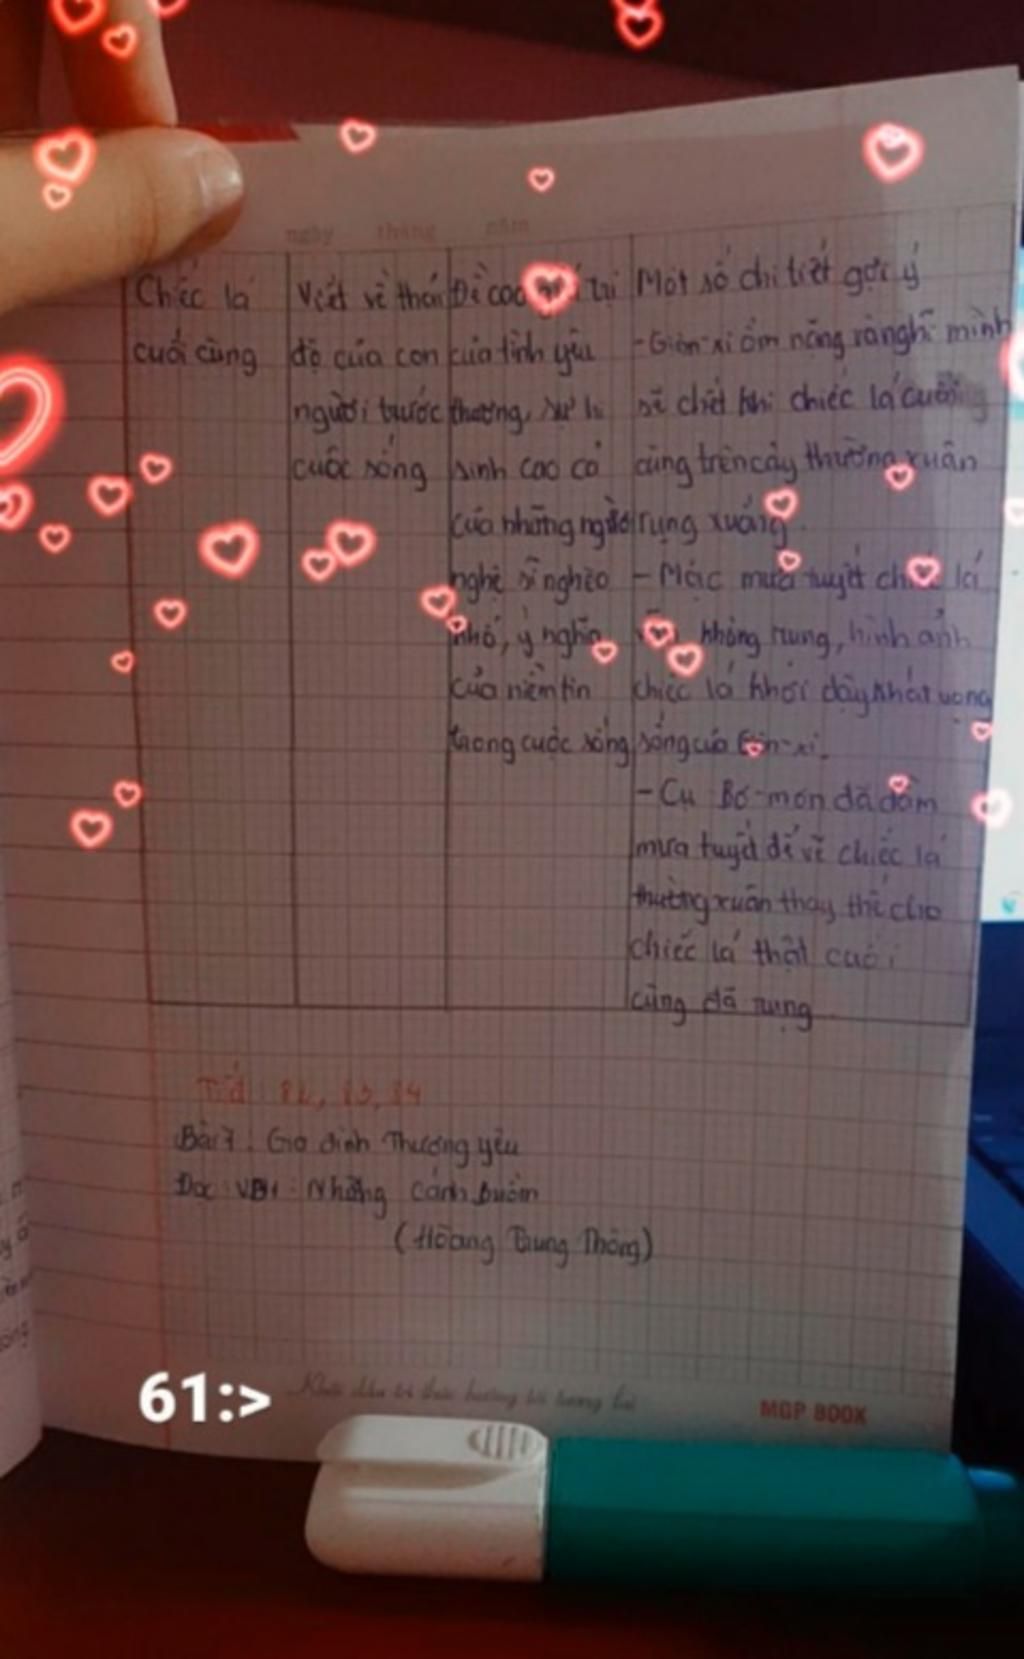 ngày tháng năm
Chiếc lá
cuối cùng
Viết về thái
độ của con
người trước
cuộc sống
Đề cao trị
của tình yêu
thương, sự hi
sinh cao cả
của những người
nghệ sĩ nghèo
khổ, ý nghĩa
của niềm tin
trong cuộc sống
Một số chi tiết gợi ý
- Giôn-xi ốm nặng và nghĩ mình
sẽ chết khi chiếc lá cuối
cùng trên cây thường xuân
rụng xuống.
- Mặc mưa tuyết chiếc lá
không rụng, hình ảnh
chiếc lá khơi dậy khát vọng
sống của Giôn-xi.
- Cụ Bơ-mơn đã dầm
mưa tuyết để vẽ chiếc lá
thường xuân thay thế cho
chiếc lá thật cuối
cùng đã rụng
Tiết: 82, 83, 84
Bài 7: Gia đình Thương yêu
Đọc VB1: Những cánh buồm
(Hoàng Trung Thông)
61:>
Khởi đầu tri thức hướng tới tương lai
MGP 800X